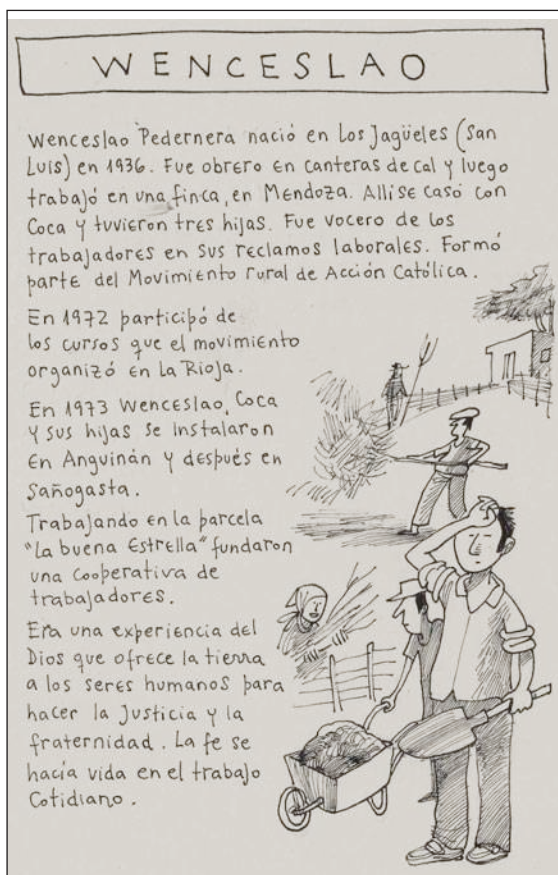 WENCESLAO
Wenceslao Pedernera nació en Los Jagüeles (San
Luis) en 1936. Fue obrero en canteras de cal y luego
trabajó en una finca, en Mendoza. Allí se casó con
Coca y tuvieron tres hijas. Fue vocero de los
trabajadores en sus reclamos laborales. Formó
parte del Movimiento rural de Acción Católica.
En 1972 participó de
los cursos que el movimiento
organizó en la Rioja.
En 1973 Wenceslao, Coca
y sus hijas se instalaron
en Anguinán y después en
Sañogasta.
Trabajando en la parcela
"La buena Estrella" fundaron
una cooperativa de
trabajadores.
Era una experiencia del
Dios que ofrece la tierra
a los seres humanos para
hacer la justicia y la
fraternidad. La fe se
hacía vida en el trabajo
cotidiano.